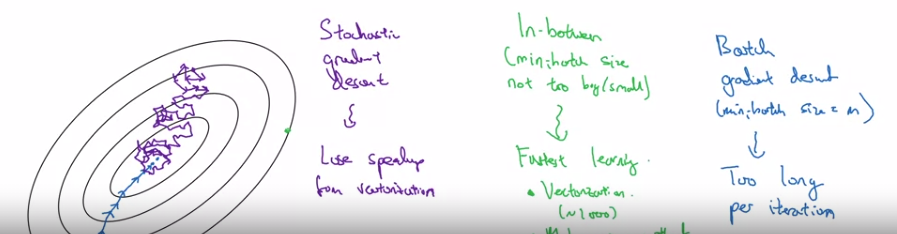 Stochastic
gradient
descent
Lose speedup
from vectorization
In-between
(mini-batch size
not too big/small)
Fastest learning.
• Vectorization.
(~1000)
Batch
gradient descent
(mini-batch size = m)
Too long
per iteration